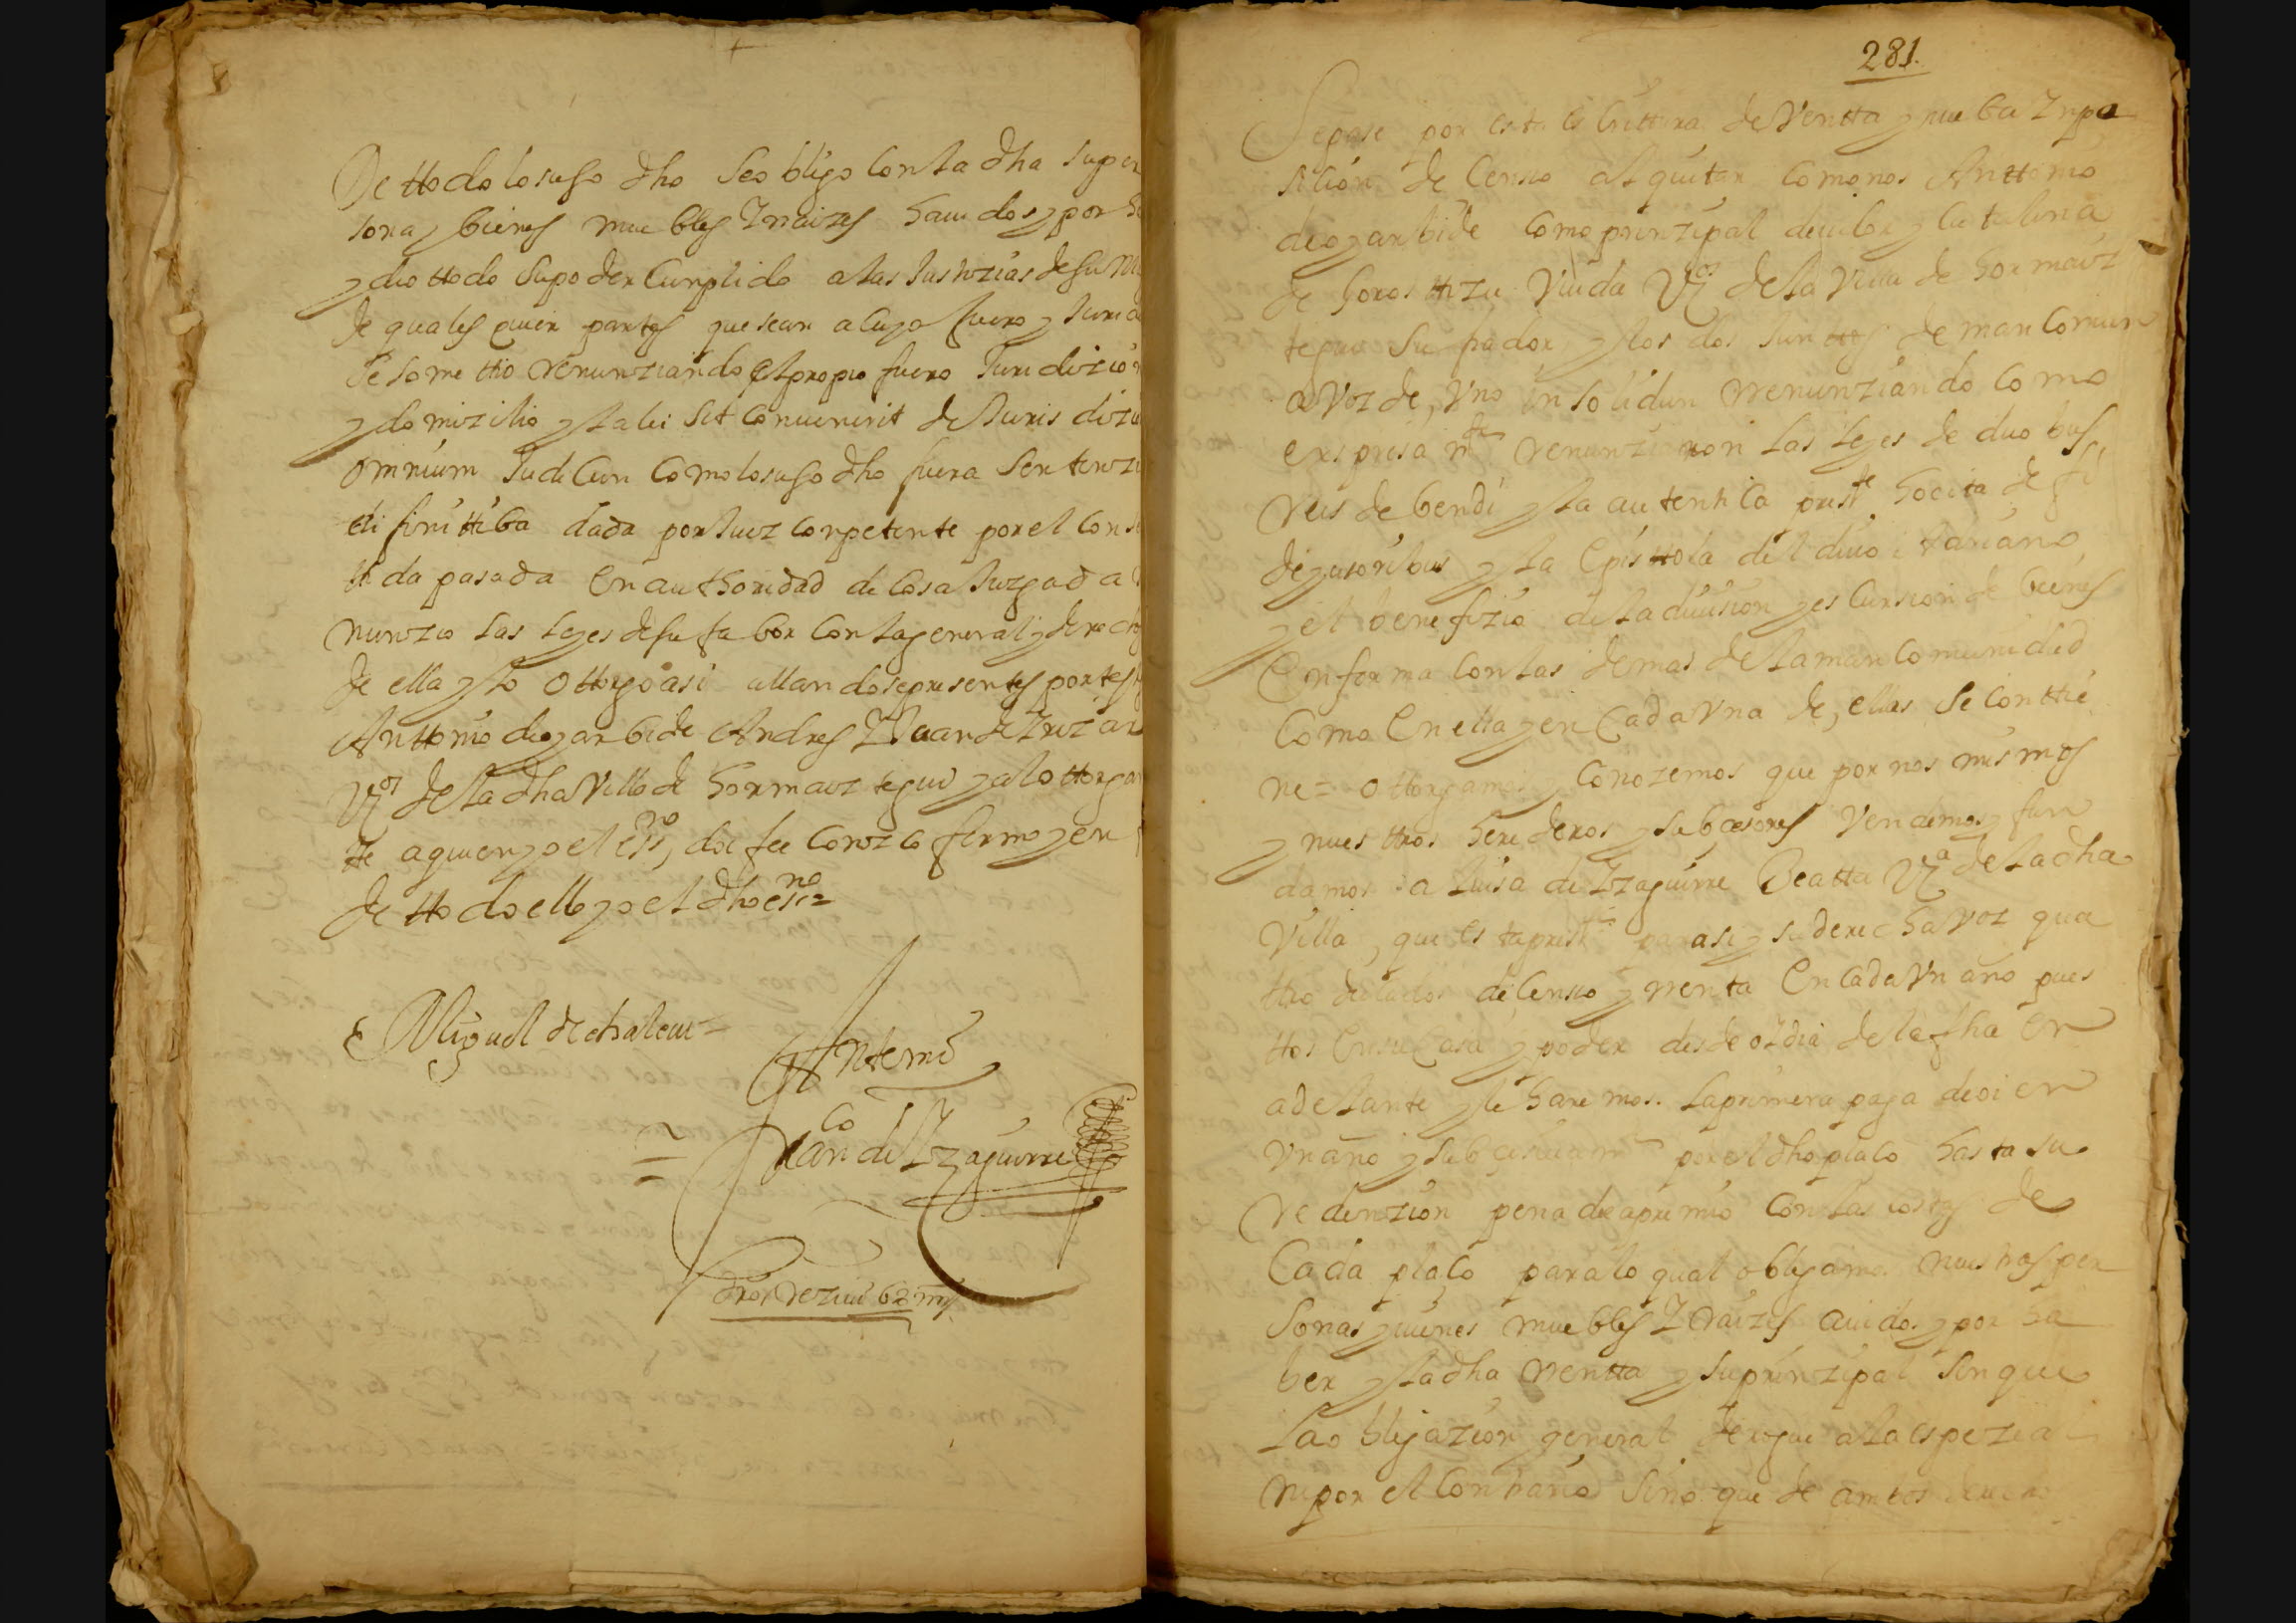 De ttodo lo suso dho se obligo con la dha su per
sona y bienes muebles I raizes hauidos y por ha
y dio ttodo su poder cunplido a las Justizias de su M
de quales quier partes que sean a cuyo fuero y Juri
se somettio renunziando el propio fuero Juridizion
y domizilio y la lei sit conuenerit de Juris dizi
omnium Judicun como lo suso dho fuera sentenzi
difinittiba dada por Juez conpetente por el cons
tida pasada en authoridad de cosa Juzgada
nunzio las leyes de su fabor con la general y derecho
de ella y lo ottorgo asi allandose presentes por tes
Anttonio de oyarbide Andres I Juan de Irizar
Vos de la dha Villa de hormaiztegui y al ottorgan
te a quien yo el essno doi fee conozco firmo y en
de ttodo ello yo el dho esno=
Miguel de chaleur=
Antemi
Juan de Yzaguirre
dros rezeui 62 ms
281.
Sepase por esta escrittura de Ventta y nueba Inpo
sicion de Censso al quitar como nos Anttonio
de oyarbide como prinzipal deudor y Catalina
de horosttizu Viuda Vos de la Villa de hormaiz
tegui su fiador y los dos Junttos de mancomun
a voz de, Vno in solidun renunziando como
expresamte renunziaron las leyes de duobus
reis debendi y la autentica preste hocita de fi
dejusoribus y la epistola del diuo Adriano
y el benefizio de la diuision y escursion de bienes
en forma con las demas de la mancomunidad
como en ella y en cada Vna de, ellas se conttie
ne= ottorgamos y conozemos que por nos mismos
y nuesttros herederos y subcesores Vendemos y fun
damos a Luisa de Yzaguirre Beatta Va de la dha
Villa, que esta preste para si y su derecha voz qua
ttro ducados de censso y rentta en cada Vn año pues
ttos en su casa y poder desde oi dia de la fha en
adelante y le haremos la primera paga de oi en
Vn año y subcesiuamte por el dho plaço hasta su
redenzion pena de apremio con las costas de
cada plaço para lo qual obligamos nuestras per
sonas y uienes muebles I raizes auidos y por ha
ber y la dha rentta y su prinzipal sin que
la obligazion general derogue a la espezial
ni por el contrario sino que de ambos derechos